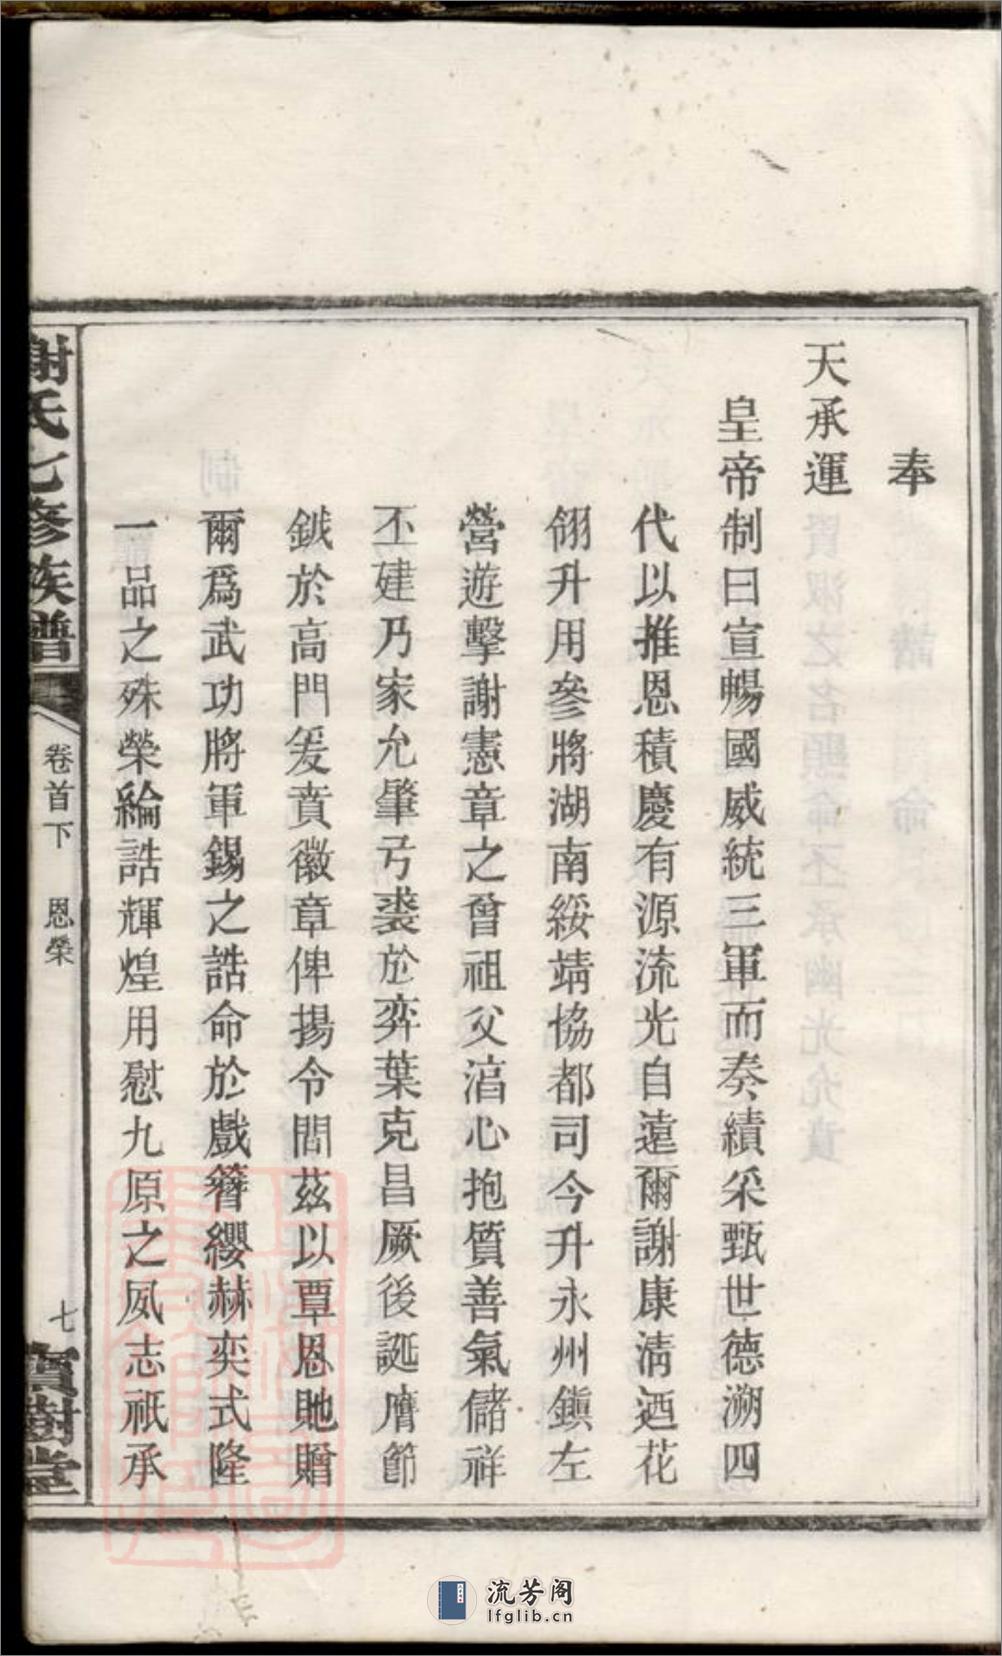 奉
天承運
皇帝制曰宣暢國威統三軍而奏績采甄世德溯四
代以推恩積慶有源流光自遠爾謝康淸迺花
翎升用參將湖南綏靖協都司今升永州鎭左
營遊擊謝憲章之曾祖父湻心抱質善氣儲祥
丕建乃家允肇弓裘於弈葉克昌厥後誕膺節
鉞於高門爰賁徽章俾揚令聞茲以覃恩貤贈
爾爲武功將軍錫之誥命於戲簪纓赫奕式隆
一品之殊榮綸誥輝煌用慰九原之夙志祇承
謝氏七修族譜
卷首下 恩榮
七
寶樹堂
流芳阁
lfglib.cn